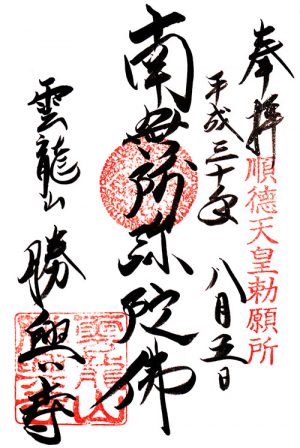 奉拝
順德天皇勅願所
平成三十年
八月五日
南無阿弥陀佛
雲龍山
勝興寺
雲龍山
勝興寺